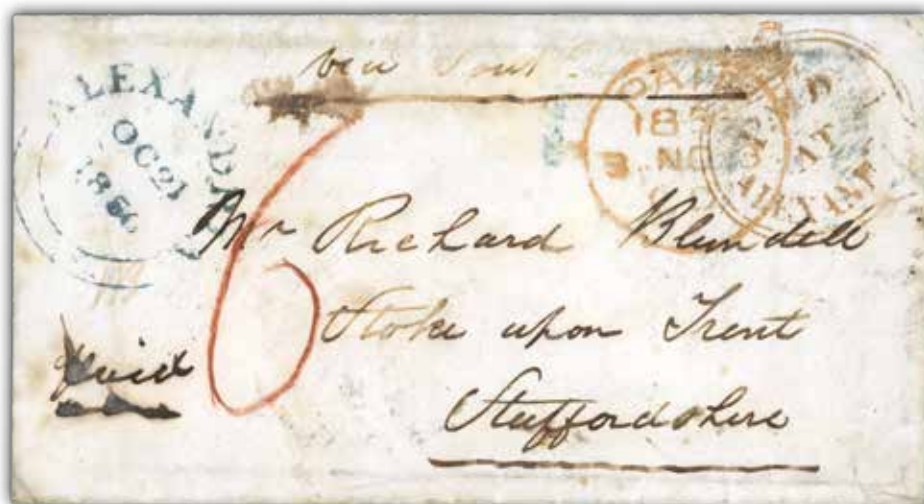 via
ALEXANDRIA
OC 21
1856
PAID
3 NO
PAID
AT
6
Mr Richard Blundell
Stoke upon Trent
Staffordshire
paid